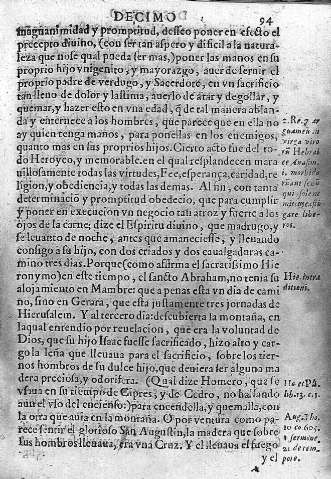 DECIMO 94
magnanimidad y promptitud, desseo poner en efecto el
precepto diuino, (con ser tan aspero y dificil a la natura-
leza que no se qual pueda ser mas,) poner las manos en su
proprio hijo vnigenito, y mayorazgo, auer de seruir el
proprio padre de verdugo, y Sacerdote, en vn sacrificio
tan lleno de dolor y lastima, auerlo de atar y degollar, y
quemar, y hazer esto en vna edad, q̃ de tal manera ablan-
da y enternece a los hombres, que parece que en ella no
ay quien tenga manos, para ponellas en los enemigos,
quanto mas en sus proprios hijos. Cierto acto fue del to-
do Heroyco, y memorable, en el qual resplandecen mara
uillosamente todas las virtudes, Fee, esperança, caridad, re
ligion, y obediencia, y todas las demas. Al fin, con tanta
determinaciõ y promptitud obedecio, que para cumplir
y poner en execucion vn negocio tan atroz y fuerte a los
ojos de la carne; dize el Espiritu diuino, que madrugo, y
se leuanto de noche, antes que amaneciesse, y lleuando
consigo a su hijo, con dos criados y dos caualgaduras ca-
mino tres dias. Porque (como afirma el sacratissimo Hie
ronymo) en este tiempo, el sancto Abraham, no tenia su
alojamiento en Mambre: que a penas esta vn dia de cami
no, sino en Gerara, que esta justamente tres jornadas de
Hierusalem. Y al tercero dia descubierta la montaña, en
la qual entendio por reuelacion, que era la voluntad de
Dios, que su hijo Isaac fuesse sacrificado, hizo alto y car-
gola leña que lleuaua para el sacrificio, sobre los tier-
nos hombros de su dulce hijo, que deuiera ser alguna ma
dera preciosa, y odorifera. (Qual dize Homero, que se
vsaua en su tiempo de Cipres, y de Cedro, no hallado
aun el vso del encienso:) para encendella, y quemalla, con
la otra que auia en la montaña. O por ventura como pa-
rece sentir el glorioso San Augustin, la madera que sobre
sus hombros lleuaua, era vna Cruz. Y el lleuaua el fuego
y el
2. Reg.
Hebra
Hie. in tra
ditioni.
lib. 13. c. 1.
Aug.
sermone
pore.